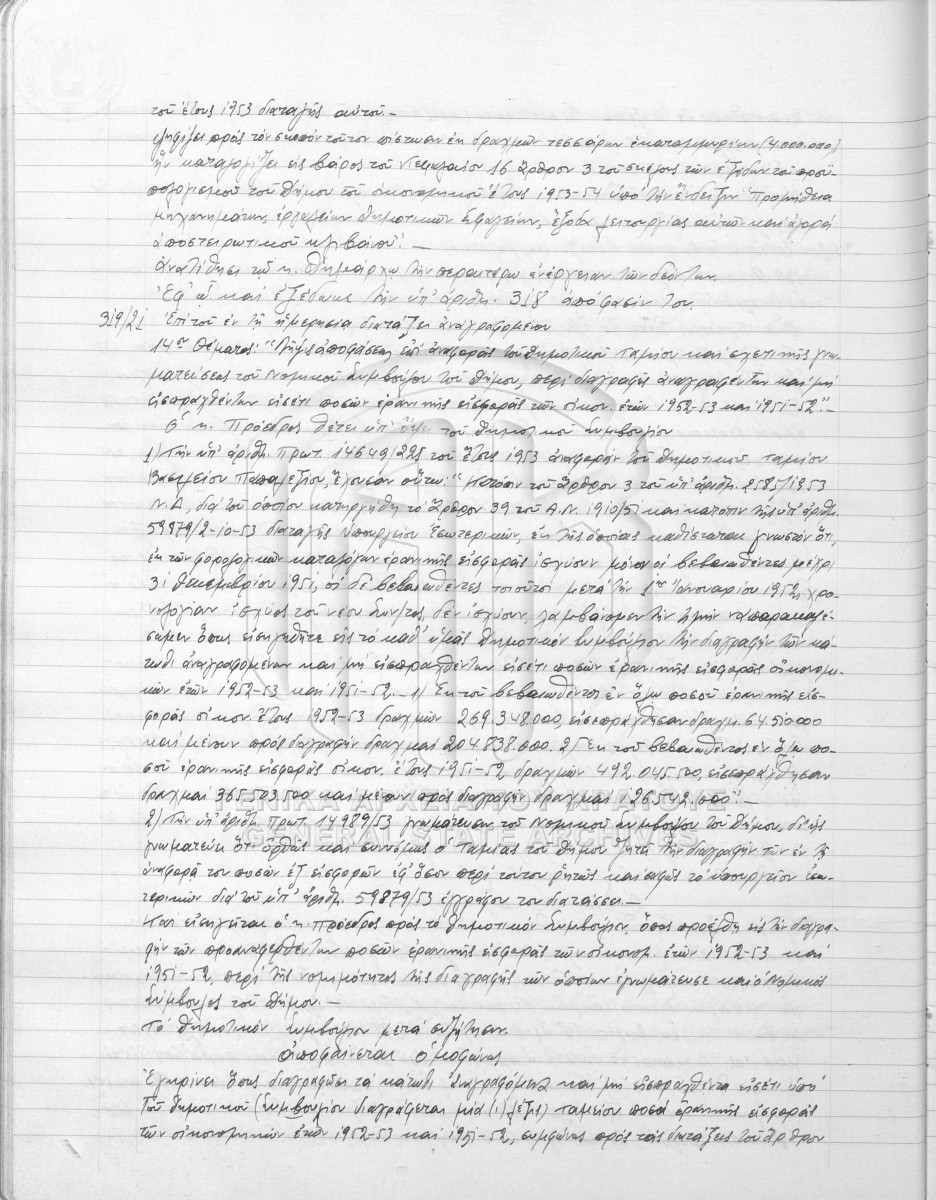 τοῦ ἔτους 1953 διαταγῆς αὐτοῦ.-
ψηφίζει πρὸς τὸν σκοπὸν τοῦτον πίστωσιν ἐκ δραχμῶν τεσσάρων ἑκατομμυρίων (4.000.000)
ἣν καταλογίζει εἰς βάρος τοῦ Κεφαλαίου 16 ἄρθρον 3 τοῦ σκέλους τῶν ἐξόδων τοῦ προϋ-
πολογισμοῦ τοῦ Δήμου τοῦ οἰκονομικοῦ ἔτους 1953-54 ὑπὸ τὴν ἔνδειξιν "Προμήθεια
μηχανημάτων, ἐργαλείων Δημοτικῶν Σφαγείων, ἔξοδα λειτουργίας αὐτῶν καὶ ἀγορὰ
ἀποστειρωτικοῦ κλιβάνου".-
Ἀνατίθησι τῷ κ. Δημάρχῳ τὴν περαιτέρω ἐνέργειαν τῶν δεόντων.
Ἐφ' ᾧ καὶ ἐξέδωκε τὴν ὑπ' ἀριθ. 318 ἀπόφασίν του.
319/21 Ἐπὶ τοῦ ἐν τῇ ἡμερησίᾳ διατάξει ἀναγραφομένου
14ου Θέματος: "Λῆψις ἀποφάσεως ἐπὶ ἀναφορᾶς τοῦ Δημοτικοῦ Ταμίου καὶ σχετικῆς γνω-
ματεύσεως τοῦ Νομικοῦ Συμβούλου τοῦ Δήμου, περὶ διαγραφῆς ἀναγραφέντων καὶ μὴ
εἰσπραχθέντων εἰσέτι ποσῶν ἐρανικῆς εἰσφορᾶς τῶν οἰκον. ἐτῶν 1952-53 καὶ 1951-52".-
Ὁ κ. Πρόεδρος θέτει ὑπ' ὄψει τοῦ Δημοτικοῦ Συμβουλίου
1) Τὴν ὑπ' ἀριθ. πρωτ. 14649/225 τοῦ ἔτους 1953 ἀναφορὰν τοῦ Δημοτικοῦ Ταμίου
Βασιλείου Παπαλεξίου, ἔχουσαν οὕτω: "Κατόπιν τοῦ ἄρθρου 3 τοῦ ὑπ' ἀριθ. 2585/1953
Ν.Δ, διὰ τοῦ ὁποίου κατηργήθη τὸ ἄρθρον 39 τοῦ Α.Ν. 1910/51 καὶ κατόπιν τῆς ὑπ' ἀριθ.
59879/2-10-53 διαταγῆς Ὑπουργείου Ἐσωτερικῶν, ἐκ τῆς ὁποίας καθίσταται γνωστὸν ὅτι,
ἐκ τῶν φορολογικῶν καταλόγων ἐρανικῆς εἰσφορᾶς ἰσχύουν μόνον οἱ βεβαιωθέντες μέχρι
31 Δεκεμβρίου 1951, οἱ δὲ βεβαιωθέντες τοιοῦτοι μετὰ τὴν 1ην Ἰανουαρίου 1952, χρο-
νολογίαν ἰσχύος τοῦ νέου Συντος, δὲν ἰσχύουν, λαμβάνομεν τὴν τιμὴν νὰ παρακαλέ-
σωμεν ὅπως εἰσηγηθῆτε εἰς τὸ καθ' ὑμᾶς Δημοτικὸν Συμβούλιον τὴν διαγραφὴν τῶν κά-
τωθι ἀναγραφομένων καὶ μὴ εἰσπραχθέντων εἰσέτι ποσῶν ἐρανικῆς εἰσφορᾶς οἰκονομι-
κῶν ἐτῶν 1952-53 καὶ 1951-52.- 1) Ἐκ τοῦ βεβαιωθέντος ἐν ὅλῳ ποσοῦ ἐρανικῆς εἰσ-
φορᾶς οἰκον. ἔτους 1952-53 δραχμῶν 269.348.000, εἰσεπράχθησαν δραχμ. 64.510.000
καὶ μένουν πρὸς διαγραφὴν δραχμαὶ 204.838.000. 2) Ἐκ τοῦ βεβαιωθέντος ἐν ὅλῳ πο-
σοῦ ἐρανικῆς εἰσφορᾶς οἰκον. ἔτους 1951-52 δραχμῶν 492.045.500, εἰσεπράχθησαν
δραχμαὶ 365.503.500 καὶ μένουν πρὸς διαγραφὴν δραχμαὶ 126.542.000".-
2) Τὴν ὑπ' ἀριθ. πρωτ. 14989/53 γνωμάτευσιν τοῦ Νομικοῦ Συμβούλου τοῦ Δήμου, δι' ἧς
γνωματεύει ὅτι ὀρθῶς καὶ συννόμως ὁ Ταμίας τοῦ Δήμου ζητᾷ τὴν διαγραφὴν τῶν ἐν τῇ
ἀναφορᾷ του ποσῶν ἐξ εἰσφορῶν ἐφ' ὅσον περὶ τούτου ῥητῶς καὶ σαφῶς τὸ Ὑπουργεῖον Ἐσω-
τερικῶν διὰ τοῦ ὑπ' ἀριθ. 59879/53 ἐγγράφου του διατάσσει.-
Καὶ εἰσηγεῖται ὁ κ. Πρόεδρος πρὸς τὸ Δημοτικὸν Συμβούλιον, ὅπως προέλθῃ εἰς τὴν διαγρα-
φὴν τῶν προαναφερθέντων ποσῶν ἐρανικῆς εἰσφορᾶς τῶν οἰκονομ. ἐτῶν 1952-53 καὶ
1951-52, περὶ τῆς νομιμότητος τῆς διαγραφῆς τῶν ὁποίων ἐγνωμάτευσε καὶ ὁ Νομικὸς
Σύμβουλος τοῦ Δήμου.-
Τὸ Δημοτικὸν Συμβούλιον μετὰ συζήτησιν
ἀποφαίνεται ὁμοφώνως
Ἐγκρίνει ὅπως διαγραφῶσι τὰ κάτωθι ἀναγραφόμενα καὶ μὴ εἰσπραχθέντα εἰσέτι ὑπὸ
τοῦ Δημοτικοῦ (Συμβουλίου διαγράφεται μία (1) λέξις) Ταμείου ποσὰ ἐρανικῆς εἰσφορᾶς
τῶν οἰκονομικῶν ἐτῶν 1952-53 καὶ 1951-52, συμφώνως πρὸς τὰς διατάξεις τοῦ ἄρθρου
ΓΕΝΙΚΑ ΑΡΧΕΙΑ ΤΟΥ ΚΡΑΤΟΥΣ
GENERAL STATE ARCHIVES